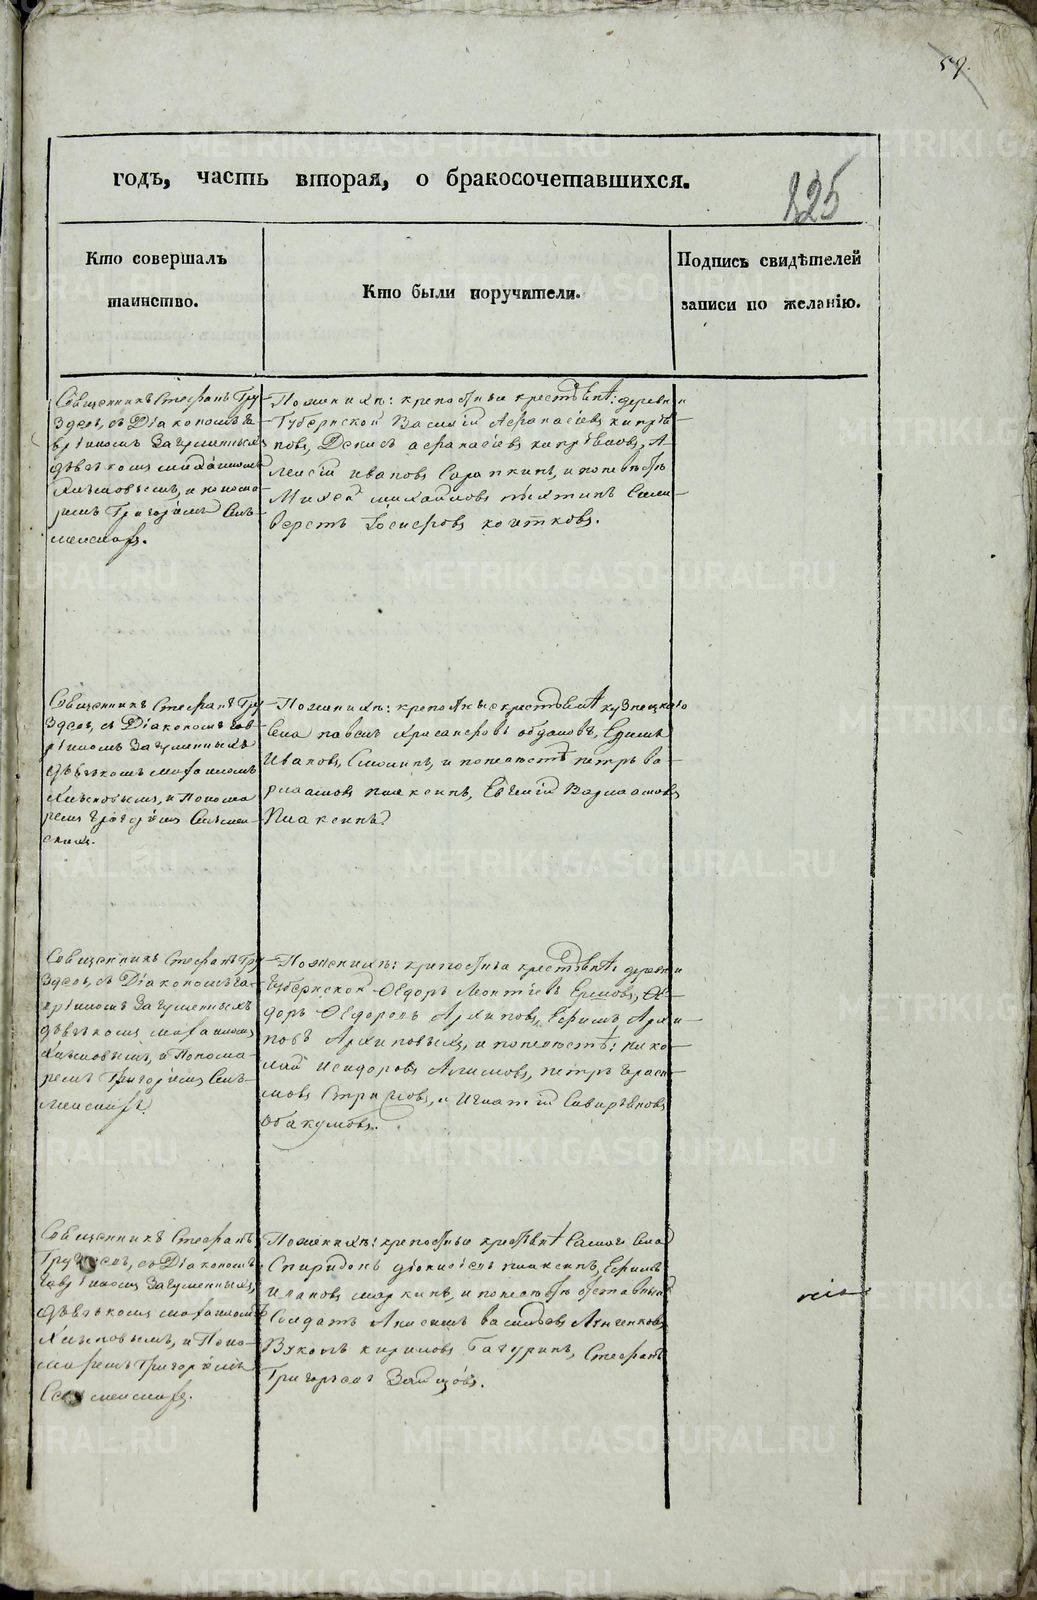 59.
годъ, часть вторая, о бракосочетавшихся.
125
Кто совершалъ
таинство.
Кто были поручители.
Подпись свидѣтелей
записи по желанію.
Священникъ Стефанъ Гру
здевъ, съ Діакономъ Га
вріиломъ Загуменныхъ
дьячкомъ михаиломъ
и понома
ремъ Григоріемъ
По женихѣ: крепостные крестьяне: деревни
Губернской Василій Афанасіевъ кипрія
новъ, Денисъ афанасіевъ кипріяновъ, А
лексій ивановъ Сарапкинъ, и по невѣстѣ
Михей михайловъ пыхтинъ Сели
верстъ
Священникъ Стефанъ Гру
здевъ, съ Діакономъ Гав
ріиломъ Загуменныхъ
дьячкомъ михаиломъ
и Понома
ремъ Григоріемъ
По женихѣ: крепостные крестьяне кузнецкаго
Села павелъ Ефимъ
Ивановъ, и по невѣстѣ петръ Ва
рлаамовъ плаксинъ, Евгеній Варлаамовъ
Плаксинъ
Священникъ Стефанъ Гру
здевъ, съ Діакономъ Га
вріиломъ Загуменныхъ
дьячкомъ михаиломъ
и Понома
ремъ Григоріемъ
По женихѣ: крепостные крестьяне деревни
Губернской Ѳедоръ Леонтіевъ Ермовъ, Ѳе
доръ Ѳедоровъ Архиповъ, Ефимъ Архи
повъ Архиповыхъ, и по невѣстѣ: Нико
лай исидоровъ Алимовъ, петръ Гераси
мовъ и Игнатій
Обакумовъ.
Священникъ Стефанъ
Груздевъ, съ Діакономъ
Гавріиломъ Загуменныхъ,
дьячкомъ михаиломъ
и Поно
маремъ Григоріемъ
По женихѣ: крепостные крестьяне Самаго Села
Спиридонъ діонисіевъ плаксинъ, Ефимъ
и по невѣстѣ отставный
Солдатъ Анисимъ васильевъ
Вуколъ кириловъ Батуринъ, Стефанъ
Григорьевъ Зайцовъ.
METRIKI.GASO-URAL.RU